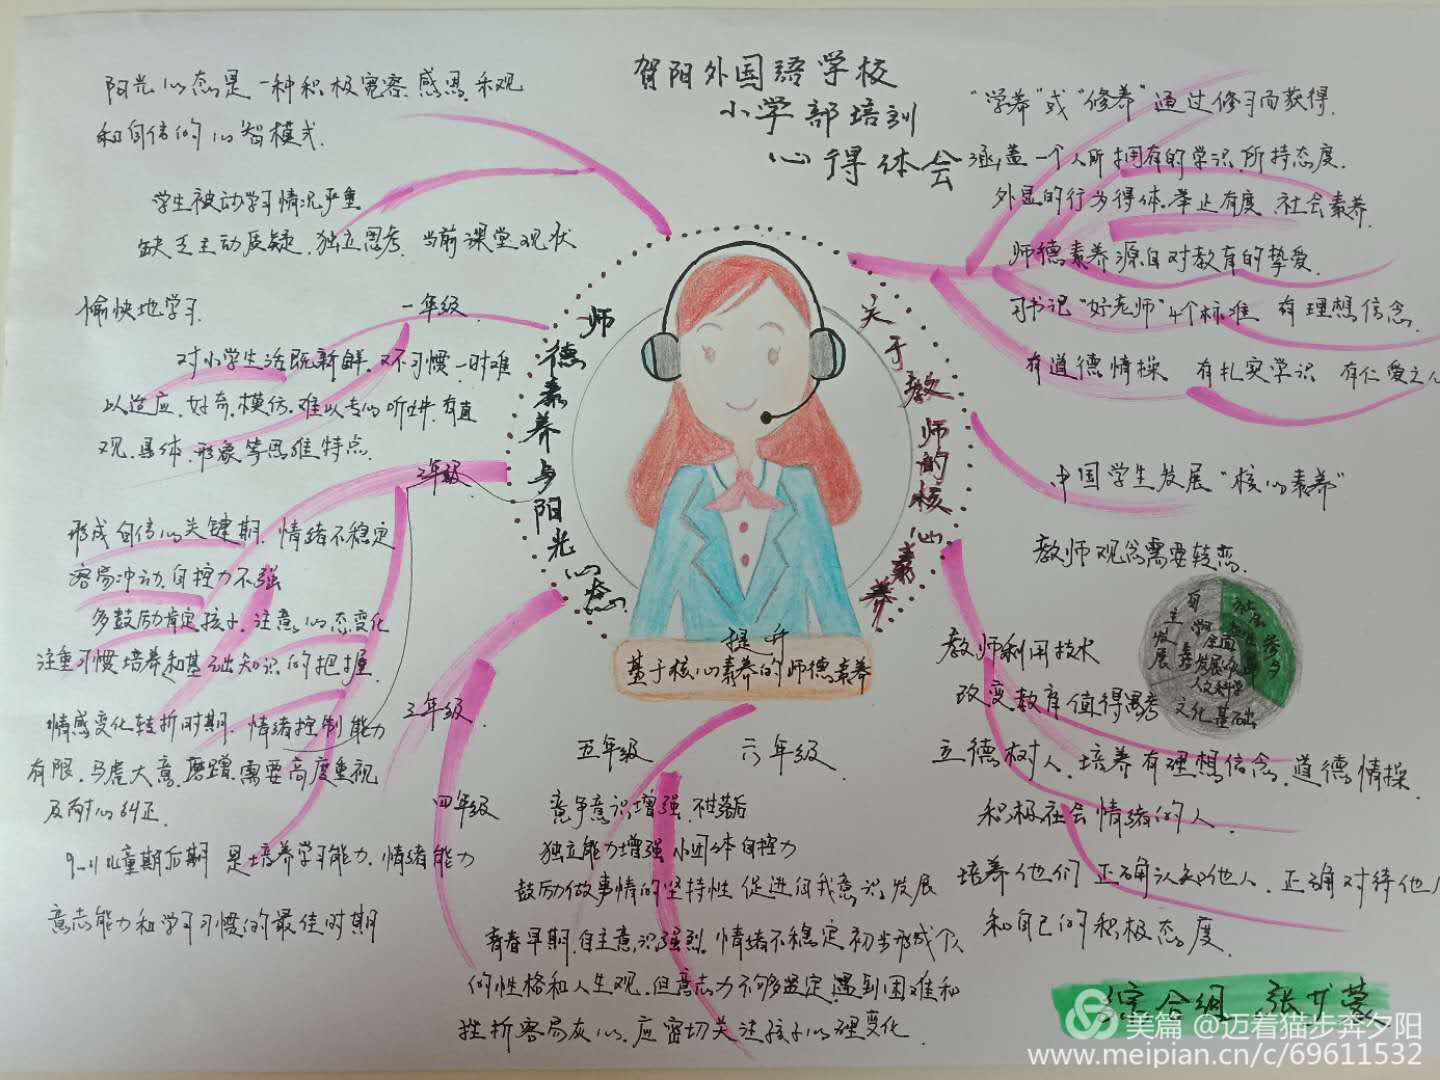 贺阳外国语学校
小学部培训
心得体会
阳光心态是一种积极宽容、感恩、乐观
和自信的心智模式.
学生被动学习情况严重
缺乏主动质疑、独立思考、当前课堂现状
愉快地学习
一年级
对小学生活既新鲜、又不习惯、一时难
以适应、好奇、模仿、难以专心听讲、有直
观、具体、形象等思维特点.
2年级
形成自信心关键期、情绪不稳定
容易冲动、自控力不强
多鼓励肯定孩子、注意心态变化
注重习惯培养和基础知识的把握.
三年级
情感变化转折时期、情绪控制能力
有限、马虎大意、磨蹭、需要高度重视
及耐心纠正.
四年级
9-11儿童期后期 是培养学习能力、情绪能力
意志能力和学习习惯的最佳时期
师德素养与阳光心态
关于教师的核心素养
提升
基于核心素养的师德素养
五年级 六年级
竞争意识增强、不甘落后
独立能力增强 小团体自控力
鼓励做事情的坚持性 促进自我意识发展
青春早期、自主意识强烈、情绪不稳定 初步形成个人
的性格和人生观、但意志力不够坚定、遇到困难和
挫折容易灰心、应密切关注孩子心理变化
“学养”或“修养”通过修习而获得.
涵盖一个人所拥有的学识、所持态度.
外显的行为得体、举止有度、社会素养
师德素养源自对教育的挚爱.
习书记“好老师”4个标准 有理想信念.
有道德情操 有扎实学识 有仁爱之心
中国学生发展“核心素养”
教师观念需要转变.
教师利用技术
改变教育值得思考
全面
发展
文化基础
立德树人、培养有理想信念、道德情操.
积极社会情绪的人.
培养他们 正确认知他人、正确对待他人
和自己的积极态度.
综合组
美篇 @迈着猫步奔夕阳
www.meipian.cn/c/69611532